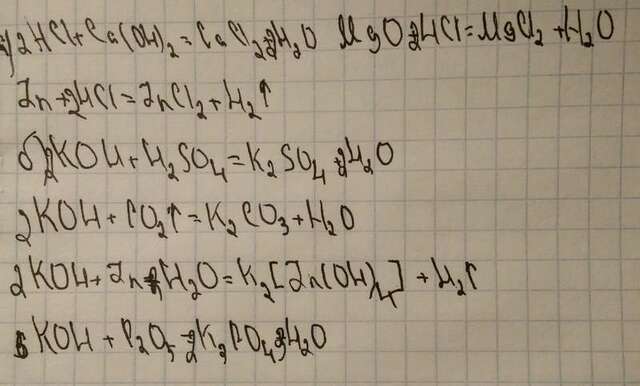 а) 2HCl+Ca(OH)₂=CaCl₂+2H₂O MgO+2HCl=MgCl₂+H₂O
Zn+2HCl=ZnCl₂+H₂↑
б) 2KOH+H₂SO₄=K₂SO₄+2H₂O
2KOH+CO₂↑=K₂CO₃+H₂O
2KOH+Zn+2H₂O=K₂[Zn(OH)₄]+H₂↑
6KOH+P₂O₅=2K₃PO₄+3H₂O